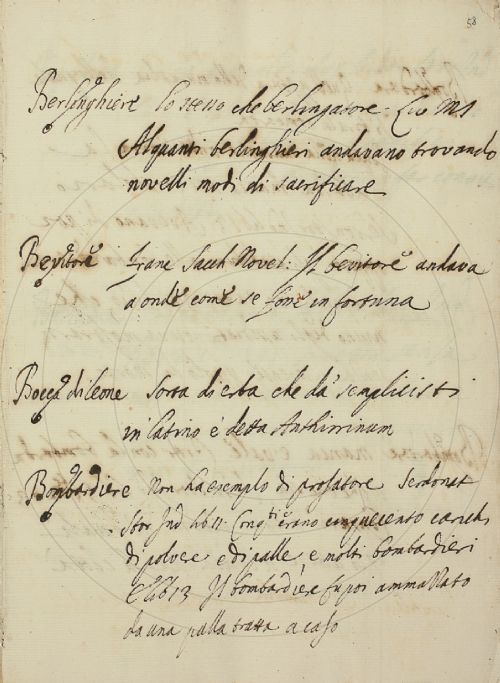 58
Berlinghiere lo stesso che berlingatore. Liv MS
Alquanti berlinghieri andavano trovando
novelli modi di sacrificare
Bevitore franc Sacch Novel: Il bevitore andava
a onde come se fosse in fortuna
Bocca di leone sorta di erba che da semplicisti
in latino è detta Anthirrinum
Bombardiere Non ha esemplo di prosatore Serdonat
Stor Ind lib 11. erano cinquecento carichi
di polvere e di palle, e molti bombardieri
E lib 13 Il bombardiere fu poi ammazzato
da una palla tratta a caso